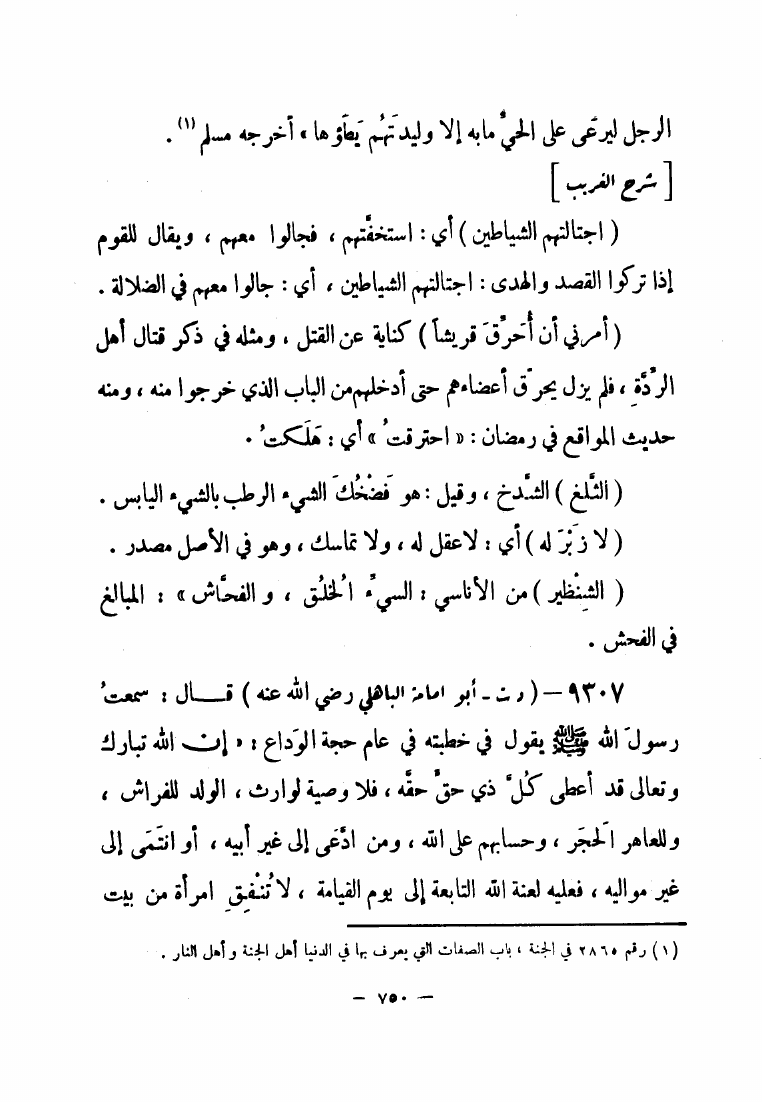 الرجل ليرعَى على الحيِّ مابه إلا وليدتَهُم يَطَؤها » أخرجه مسلم (١) .
[ شرح الغريب ]
( اجتالتهم الشياطين ) أي : استخفَّتهم ، فجالوا معهم ، ويقال للقوم
إذا تركوا القصد والهدى : اجتالتهم الشياطين ، أي : جالوا معهم في الضلالة .
( أمرني أن أُحَرِّقَ قريشاً ) كناية عن القتل ، ومثله في ذكر قتال أهل
الرِّدَّةِ ، فلم يزل يحرِّق أعضاءهم حتى أدخلهم من الباب الذي خرجوا منه ، ومنه
حديث المواقع في رمضان : « احترقتُ » أي : هَلَكتُ .
( الثَّلغ ) الشَّدخ ، وقيل : هو فَضْخُكَ الشيء الرطب بالشيء اليابس .
( لا زَبْرَ له ) أي : لا عقل له ، ولا تماسك ، وهو في الأصل مصدر .
( الشِنْظير ) من الأناسي : السيِّءُ الخُلُق ، و الفحَّاش » : المبالغ
في الفحش .
٩٣٠٧ — ( د ت - أبو امامة الباهلي رضي الله عنه ) قـــال : سمعتُ
رسولَ الله ﷺ يقول في خطبته في عام حجة الوَداع : « إن الله تبارك
وتعالى قد أعطى كُلَّ ذي حقٍّ حقَّه ، فلا وصية لوارث ، الولد للفراش ،
وللعاهر الحجَر ، وحسابهم على الله ، ومن ادَّعَى إلى غير أبيه ، أو انتَمَى إلى
غير مواليه ، فعليه لعنة الله التابعة إلى يوم القيامة ، لا تُنْفِقِ امرأة من بيت
(١) رقم ٢٨٦٥ في الجنة ، باب الصفات التي يعرف بها في الدنيا أهل الجنة وأهل النار .
— ٧٥٠ —